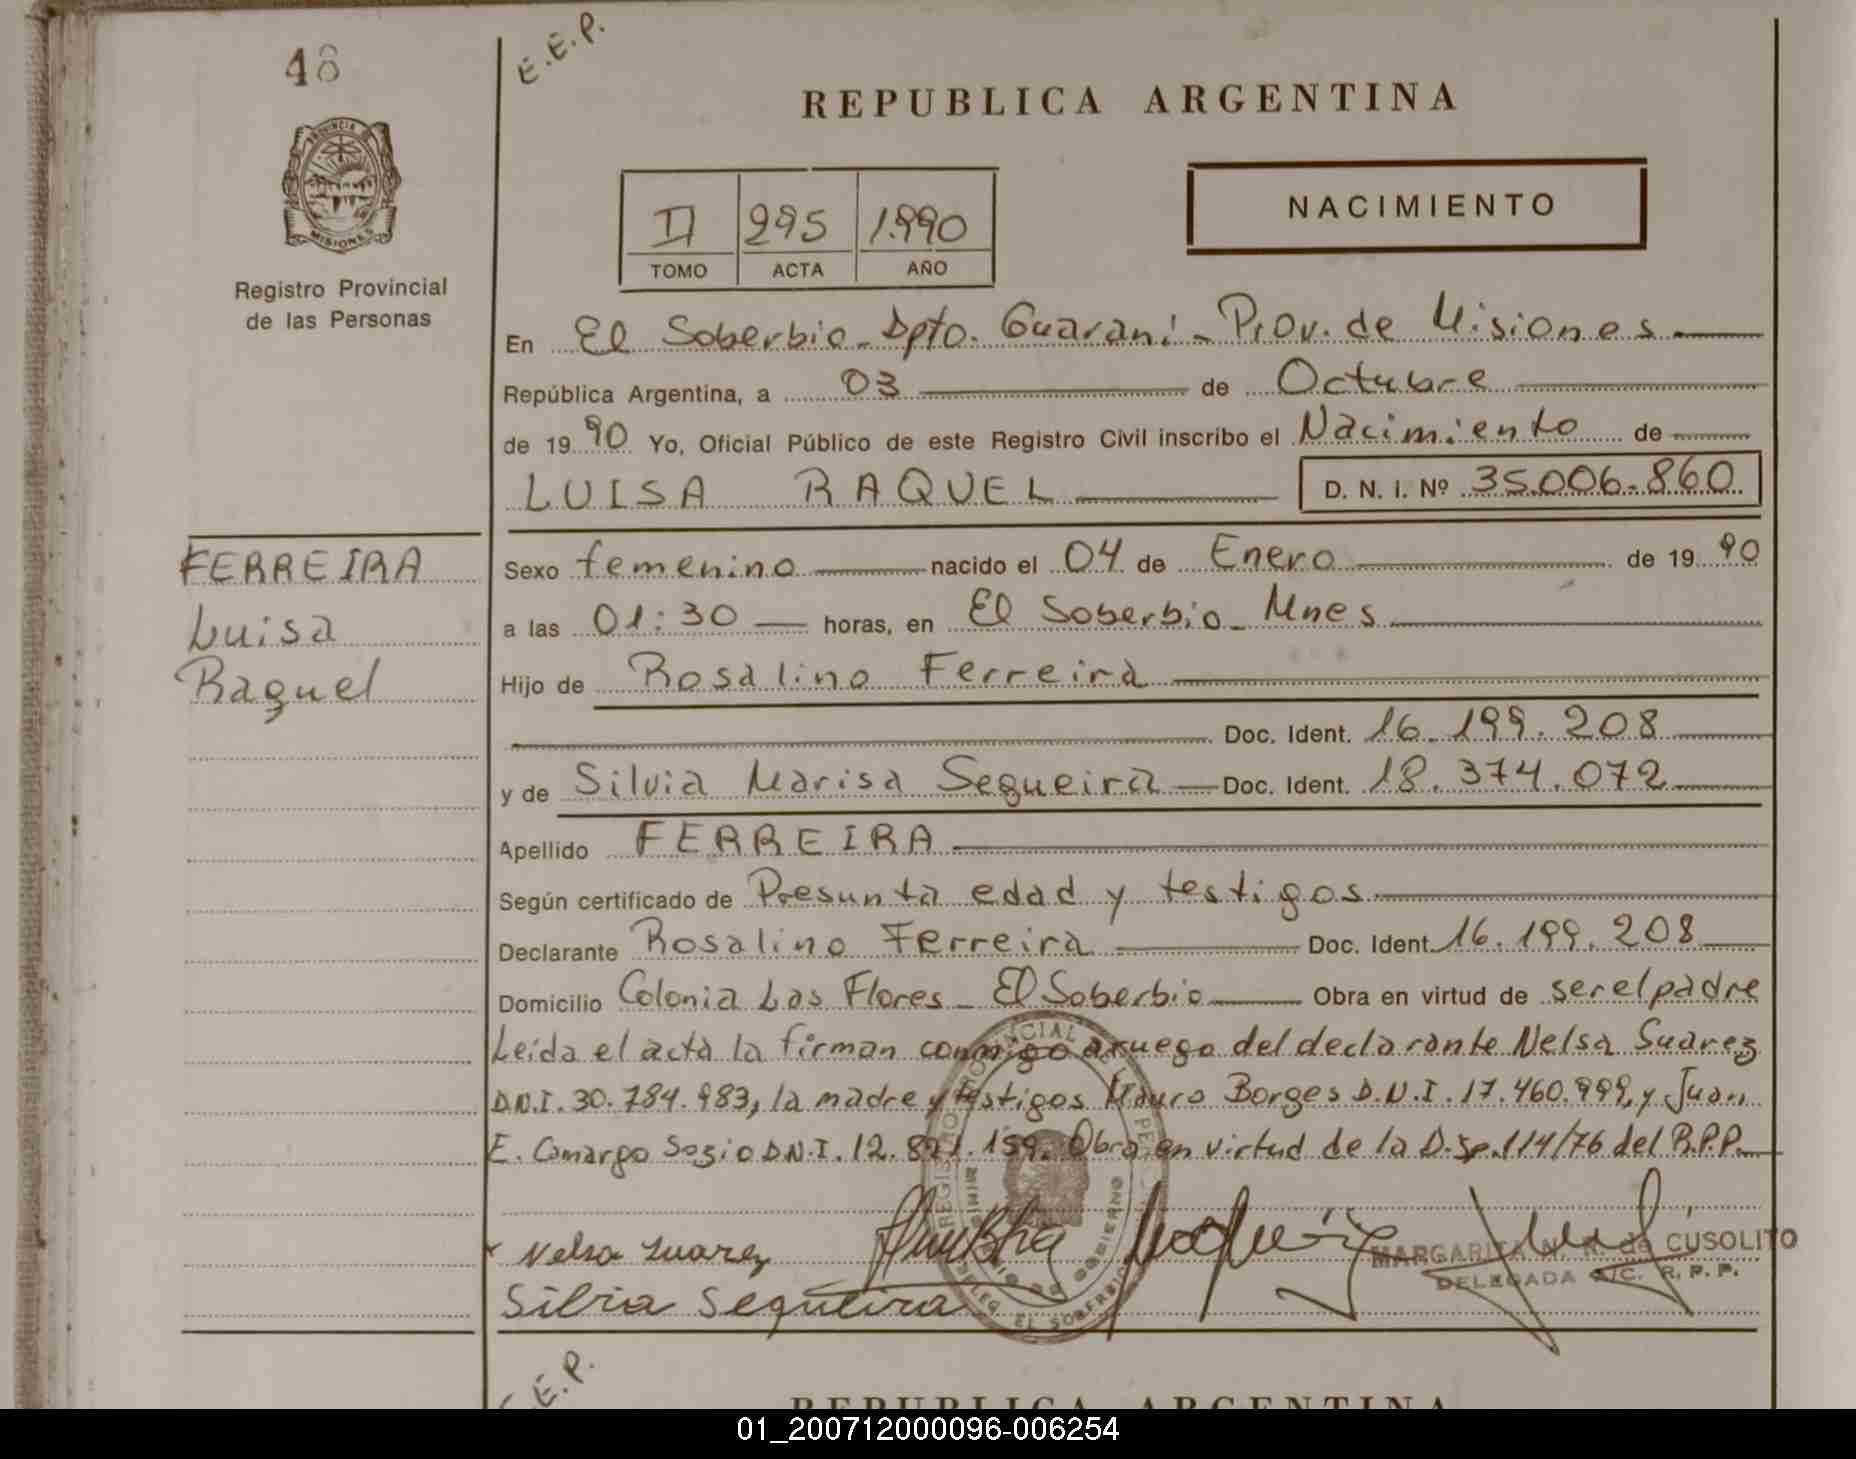 48
E.E.P.
REPUBLICA ARGENTINA
PROVINCIA DE
MISIONES
Registro Provincial
de las Personas
II 295 1.990
TOMO ACTA AÑO
NACIMIENTO
En El Soberbio - Dpto. Guaraní - Prov. de Misiones
República Argentina, a 03 de Octubre
de 19 90 Yo, Oficial Público de este Registro Civil inscribo el Nacimiento de
LUISA RAQUEL D. N. I. Nº 35.006.860
FERREIRA
Luisa
Raquel
Sexo femenino nacido el 04 de Enero de 19 90
a las 01:30 horas, en El Soberbio - Mnes
Hijo de Rosalino Ferreira
Doc. Ident. 16.199.208
y de Silvia Marisa Sequeira Doc. Ident. 18.374.072
Apellido FERREIRA
Según certificado de Presunta edad y testigos
Declarante Rosalino Ferreira Doc. Ident. 16.199.208
Domicilio Colonia Las Flores - El Soberbio Obra en virtud de ser el padre
Leida el acta la firman conmigo a ruego del declarante Nelsa Suarez
D.N.I. 30.784.983, la madre y testigos Mauro Borges D.N.I. 17.460.999, y Juan
E. Camargo Sosio D.N.I. 12.821.159. Obra en virtud de la Disp. 114/76 del R.P.P.
Nelsa Suarez
Silvia Sequeira
MARGARITA N. R. de CUSOLITO
DELEGADA A/C. R. P. P.
DELEG. EL SOBERBIO
E.P.
REPUBLICA ARGENTINA
01_200712000096-006254